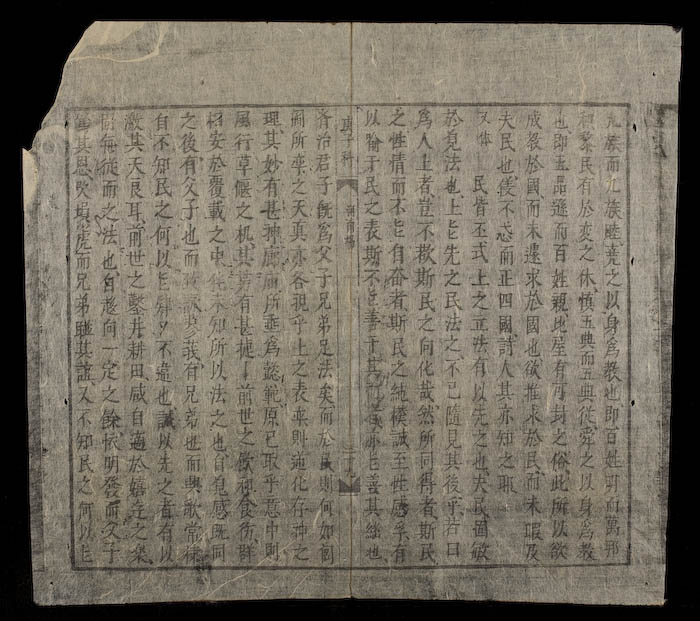 九族而九族睦堯之以身爲教也即百姓明而萬邦
和黎民有於变之休慎五典而五典從舜之以身爲教
也即五品遜而百姓親比屋有可封之俗此所以欲
成教於國而未遽求於國也欲推求於民而未暇及
夫民也儀不忒而正四國詩人其亦知之耶
又体 民皆丕式上之立法有以先之也夫民固敏
於見法也上𠃣先之民法之不已隨見其後乎若曰
爲人上者豈不教斯民之向化哉然所同得者斯民
之性情而不𠃣自奮者斯民之純模誠至性感孚有
以喻于民之表斯不𠃣善于其亦𠃣善其絲也
子科
齊治君子既爲父子兄弟足法矣而於民則何如個
所禀之天真亦各視乎上之表率則道化存神之
理其妙有甚神廊廟所垂爲懿範原已取乎意中則
風行草偃之机其勢有甚捷前世之飲和食德群
相安於覆載之中純未知所以法之也自鬼感既同
之後有父子也而哉有兄弟也而興歌常棣
自不知民之何以𠃣肆夕不違也誠以先之者有以
激其天良耳前世之鑿井耕田咸自適於嬉皞之樂
從而之法也自趨向一定之餘怀明發而父子
篤其恩吹塤篪而兄弟雖其誼又不知民之何以𠃣